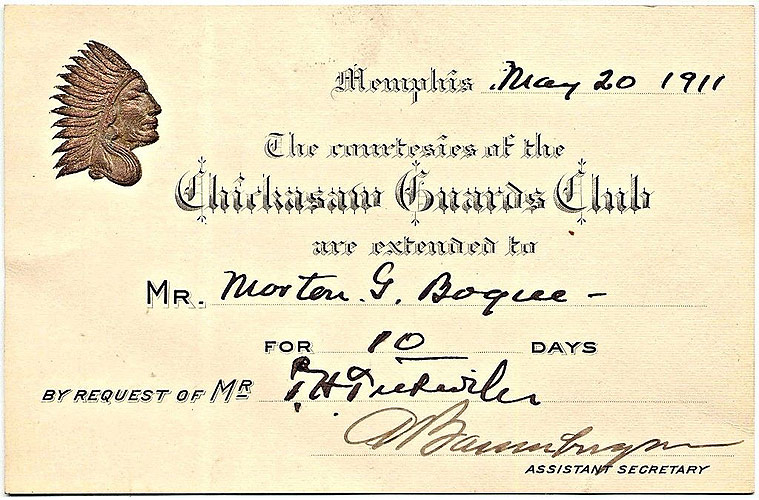 Memphis May 20 1911
The courtesies of the
Chickasaw Guards Club
are extended to
MR. Morton G. Bogue -
FOR 10 DAYS
BY REQUEST OF MR
ASSISTANT SECRETARY